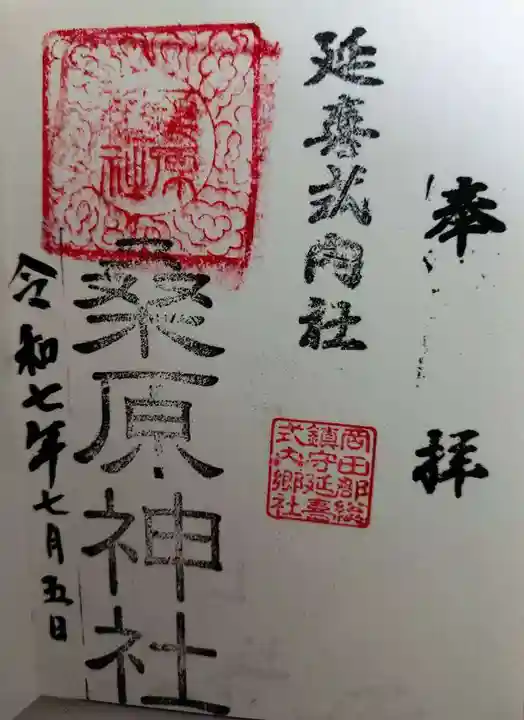 奉拝
延喜式内社
岡田郡総
鎮守延喜
式内郷社
桑原神社
令和七年七月五日